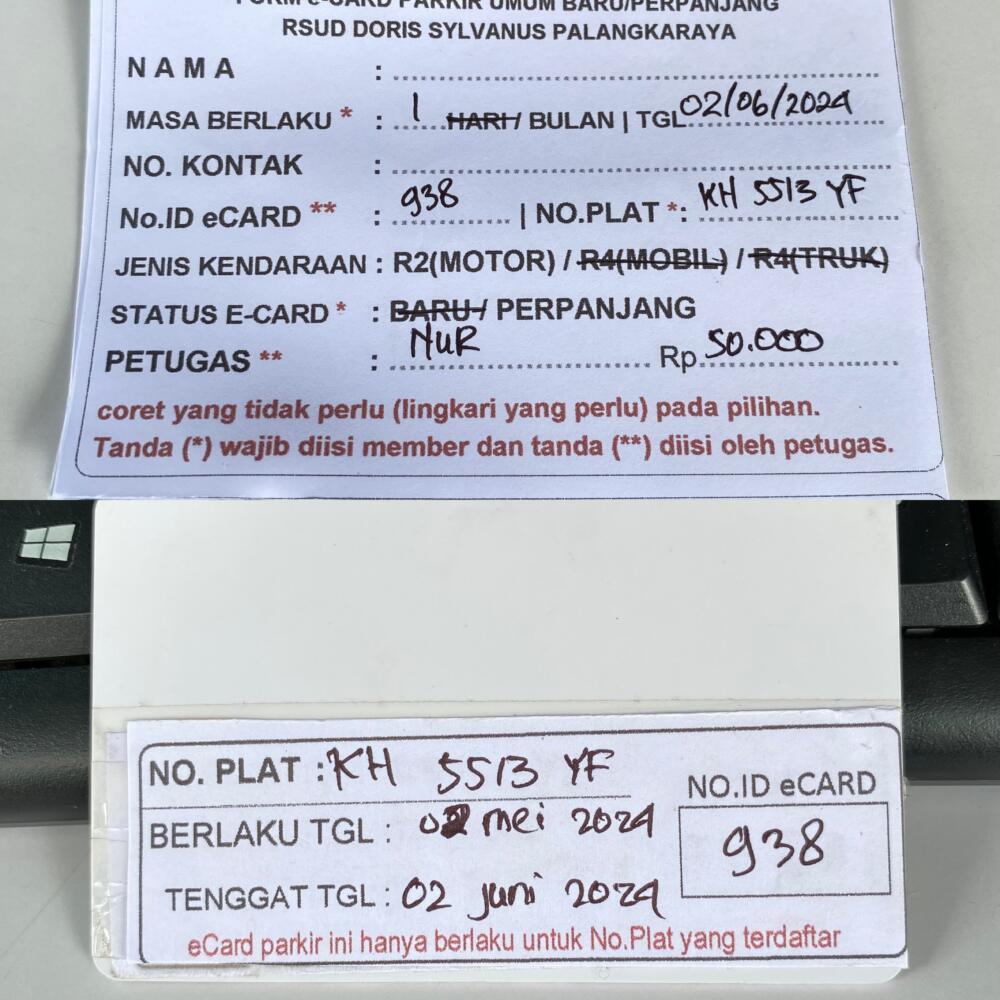 FORM e-CARD PARKIR UMUM BARU/PERPANJANG
RSUD DORIS SYLVANUS PALANGKARAYA
N A M A :
MASA BERLAKU * : 1 HARI / BULAN | TGL 02/06/2024
NO. KONTAK :
No.ID eCARD ** : 938 | NO.PLAT *: KH 5513 YF
JENIS KENDARAAN : R2(MOTOR) / R4(MOBIL) / R4(TRUK)
STATUS E-CARD * : BARU / PERPANJANG
PETUGAS ** : NUR Rp. 50.000
coret yang tidak perlu (lingkari yang perlu) pada pilihan.
Tanda (*) wajib diisi member dan tanda (**) diisi oleh petugas.
NO. PLAT : KH 5513 YF
NO.ID eCARD
938
BERLAKU TGL : 02 mei 2024
TENGGAT TGL : 02 juni 2024
eCard parkir ini hanya berlaku untuk No.Plat yang terdaftar